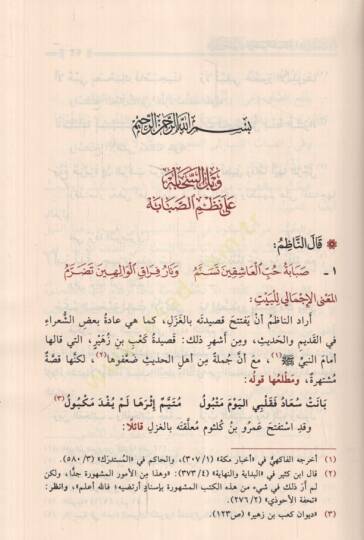 بسم الله الرحمن الرحيم
وبل السحابة
على نظم الصبابة
❋ قَالَ النَّاظِمُ:
١ - صَبَابَةُ حُبِّ الْعَاشِقِينَ تَسَنَّمُ وَنَارُ فِرَاقِ الْوَالِهِينَ تَضَرَّمُ
المعنى الإجمالي للبيت:
أراد الناظمُ أنْ يَفتتحَ قصيدتَه بالغَزَلِ، كما هي عادةُ بعضِ الشُّعراءِ
في القديمِ والحَديثِ، ومِن أشهرِ ذلك: قصيدةُ كَعْبِ بنِ زُهَيْرٍ، التي قالها
أمامَ النبيِّ ﷺ(١)، معَ أنَّ جُملةً مِن أهلِ الحديثِ ضَعَّفوها(٢)، لكنَّها قصَّةٌ
مُشتهرةٌ، ومَطلَعُها قولُه:
بَانَتْ سُعَادُ فَقَلْبِي الْيَوْمَ مَتْبُولُ مُتَيَّمٌ إِثْرَهَا لَمْ يُفْدَ مَكْبُولُ (٣)
وقدِ استَفتحَ عَمرُو بنُ كُلثومٍ معلَّقتَه بالغزلِ قائلًا:
(١) أخرجه الفاكهي في «أخبار مكة» (٣٠٧/١)، والحاكم في «المستدرك» (٥٨٠/٣).
(٢) قال ابن كثير في «البداية والنهاية» (٣٧٣/٤): «وهذا من الأمور المشهورة جدًّا، ولكن
لم أرَ ذلك في شيء من هذه الكتب المشهورة بإسنادٍ أرتضيه؛ فالله أعلم»، وانظر:
«تحفة الأحوذي» (٢٧٦/٢).
(٣) «ديوان كعب بن زهير» (ص١٢٣).